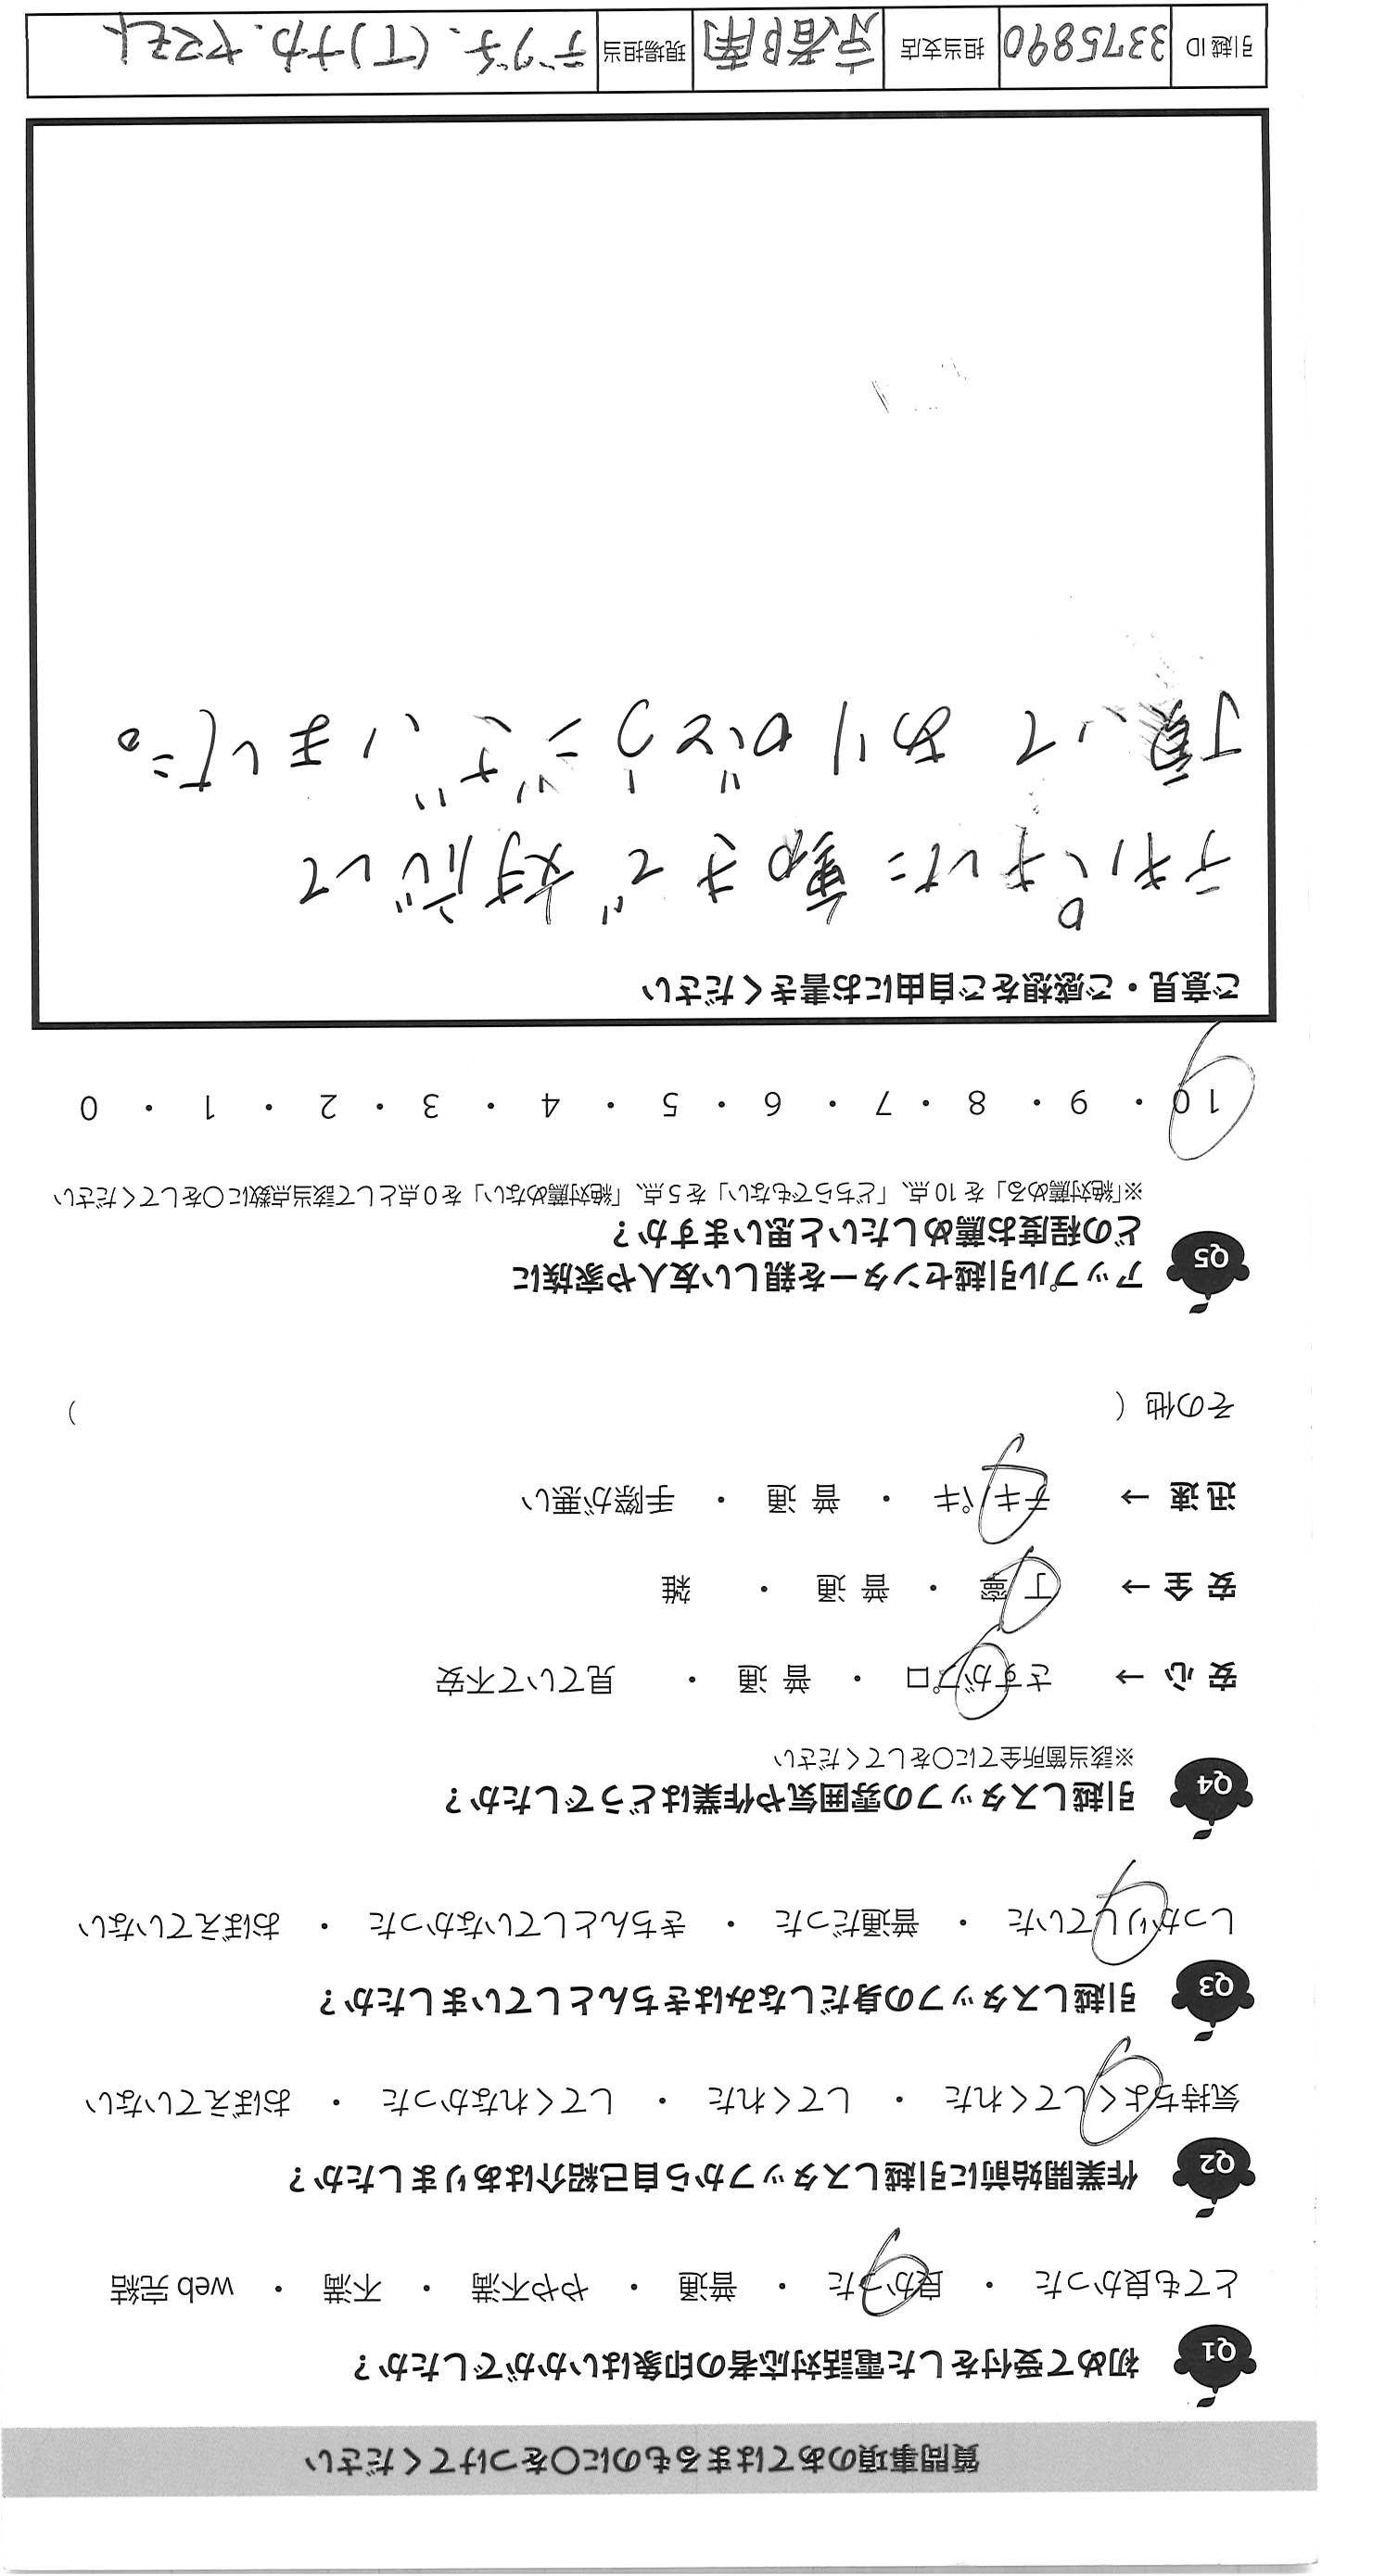 質問事項のあてはまるものに〇をつけてください
Q1 初めて受付をした電話対応者の印象はいかがでしたか？
とても良かった ・ 良かった ・ 普通 ・ やや不満 ・ 不満 ・ web 完結
Q2 作業開始前に引越しスタッフから自己紹介はありましたか？
気持ちよくしてくれた ・ してくれた ・ してくれなかった ・ おぼえていない
Q3 引越しスタッフの身だしなみはきちんとしていましたか？
しっかりしていた ・ 普通だった ・ きちんとしていなかった ・ おぼえていない
Q4 引越しスタッフの雰囲気や作業はどうでしたか？
※該当箇所全てに〇をしてください
安心 → さすがプロ ・ 普通 ・ 見ていて不安
安全 → 丁寧 ・ 普通 ・ 雑
迅速 → テキパキ ・ 普通 ・ 手際が悪い
その他（ ）
Q5 アップル引越センターを親しい友人や家族に
どの程度お薦めしたいと思いますか？
※「絶対薦める」を10点、「どちらでもない」を5点、「絶対薦めない」を0点として該当点数に〇をしてください
10 ・ 9 ・ 8 ・ 7 ・ 6 ・ 5 ・ 4 ・ 3 ・ 2 ・ 1 ・ 0
ご意見・ご感想をご自由にお書きください
テキパキした動きで対応して
頂いて ありがとうございました。
引越ID 3375890 担当支店 京都南 現場担当 デグチ.(T)ナカ.ヤマモト